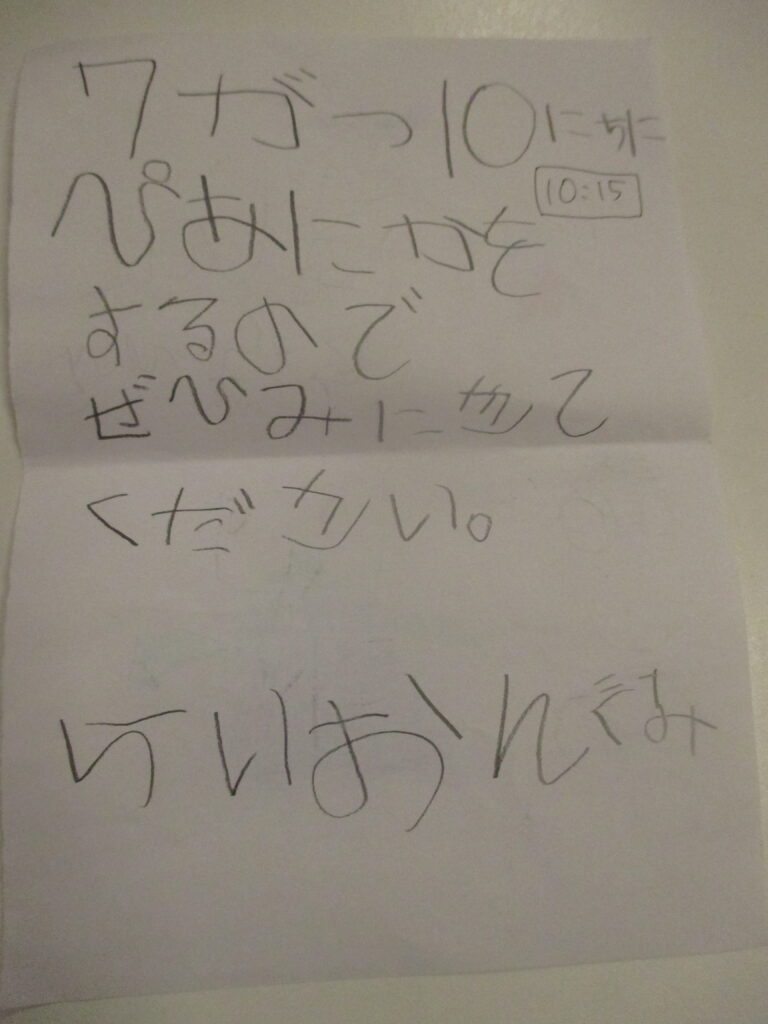 7がつ10にちに
10:15
ぴあにかを
するので
ぜひみにきて
ください。
けいおんぐみ